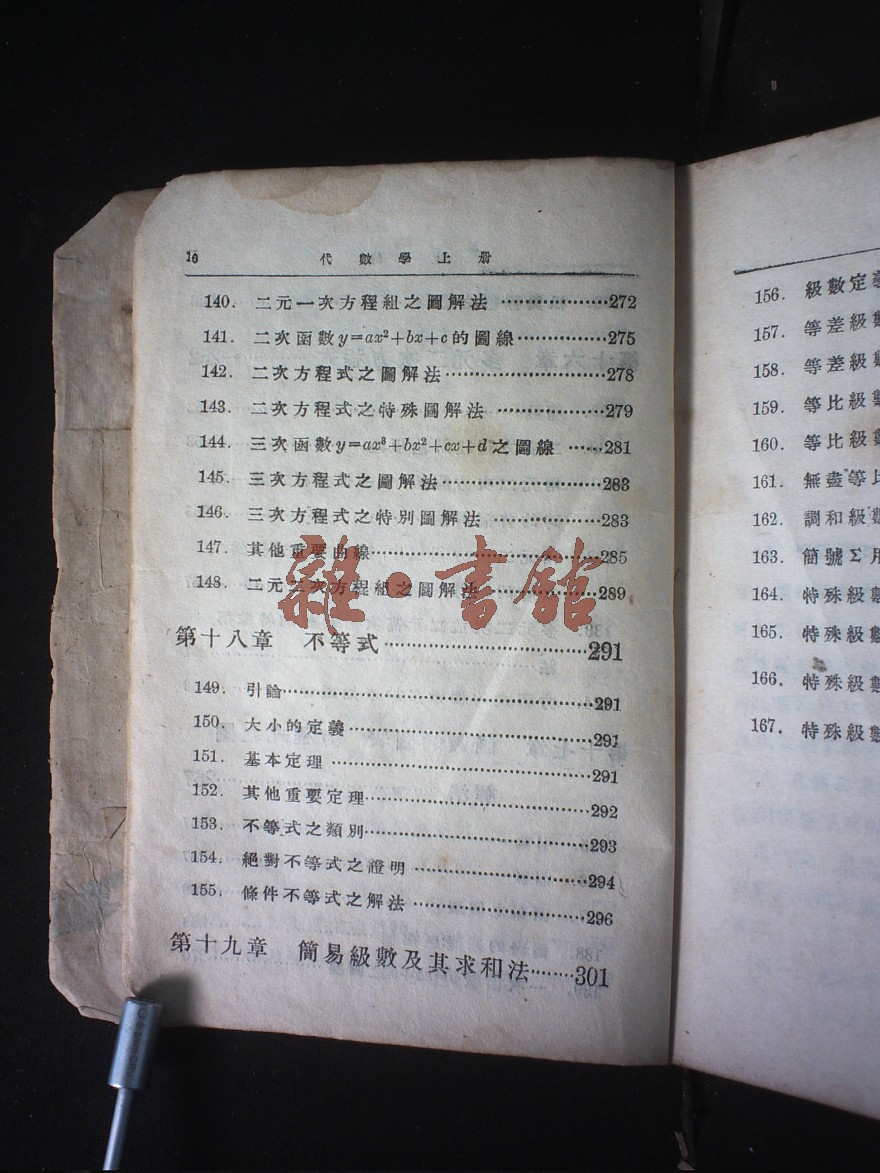 10 代數學上册
140. 二元一次方程組之圖解法 ………………272
141. 二次函數y=ax²+bx+c的圖線 ……………275
142. 二次方程式之圖解法………………………278
143. 二次方程式之特殊圖解法 ………………279
144. 三次函數y=ax³+bx²+cx+d之圖線 ……281
145. 三次方程式之圖解法………………………283
146. 三次方程式之特別圖解法 ………………283
147. 其他重要曲線………………………………285
148. 二元二次方程組之圖解法 ………………289
第十八章 不等式……………………………291
149. 引論…………………………………………291
150. 大小的定義…………………………………291
151. 基本定理 …………………………………291
152. 其他重要定理………………………………292
153. 不等式之類別………………………………293
154. 絕對不等式之證明 ………………………294
155. 條件不等式之解法 ………………………296
第十九章 簡易級數及其求和法………301
雜·書館
156. 級數定義
157. 等差級數
158. 等差級數
159. 等比級數
160. 等比級數
161. 無盡等比
162. 調和級數
163. 簡號Σ用
164. 特殊級數
165. 特殊級數
166. 特殊級數
167. 特殊級數